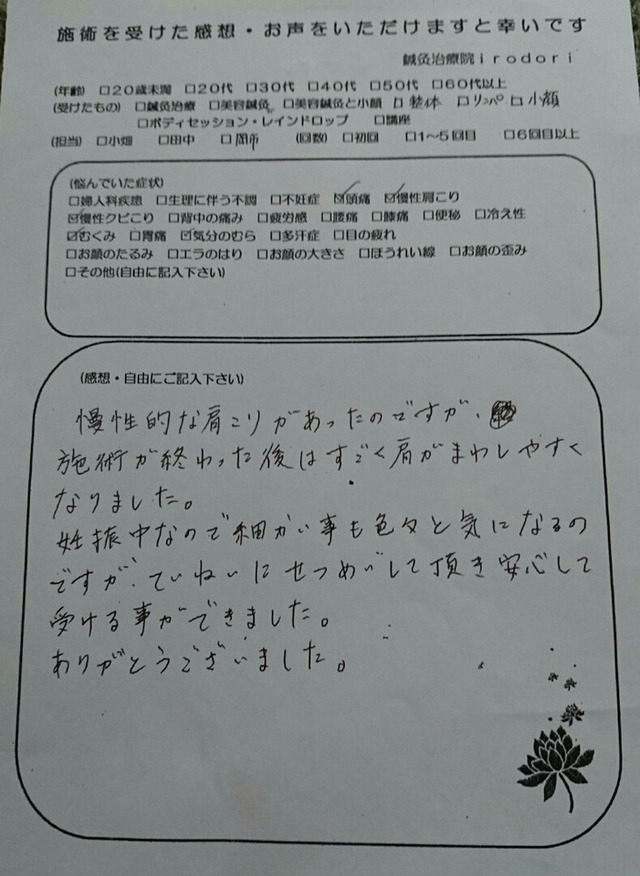 施術を受けた感想・お声をいただけますと幸いです
鍼灸治療院irodori
(年齢) □20歳未満 □20代 □30代 □40代 □50代 □60代以上
(受けたもの) □鍼灸治療 □美容鍼灸 □美容鍼灸と小顔 □整体 □リンパ □小顔
□ボディセッション・レインドロップ □講座
(担当) □小畑 □田中 □岡市 (回数) □初回 □1~5回目 □6回目以上
(悩んでいた症状)
□婦人科疾患 □生理に伴う不調 □不妊症 ☑頭痛 ☑慢性肩こり
☑慢性クビこり □背中の痛み □疲労感 □腰痛 □膝痛 □便秘 □冷え性
☑むくみ □胃痛 ☑気分のむら □多汗症 □目の疲れ
□お顔のたるみ □エラのはり □お顔の大きさ □ほうれい線 □お顔の歪み
□その他(自由に記入下さい)
(感想・自由にご記入下さい)
慢性的な肩こりがあったのですが、
施術が終わった後はすごく肩がまわしやすく
なりました。
妊娠中なので細かい事も色々と気になるの
ですが、ていねいにせつめいして頂き安心して
受ける事ができました。
ありがとうございました。